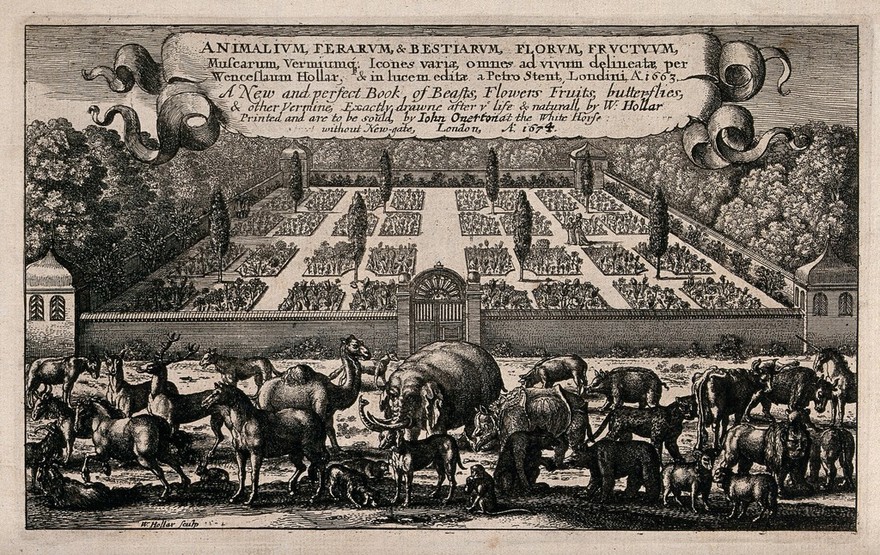 ANIMALIVM, FERARVM, & BESTIARVM, FLORVM, FRVCTVVM,
Muscarum, Vermiumq;, Icones variæ, omnes ad vivum delineatæ, per
Wenceslaum Hollar, & in lucem editæ a Petro Stent, Londini, Aº.1663.
A New and perfect Book, of Beasts, Flowers Fruits, butterflies,
& other Vermine, Exactly drawne after yͤ life & naturall, by W. Hollar
Printed and are to be sould, by Iohn Overton at the White Horse
without New-gate, London, Aº. 1674.
W. Hollar sculp